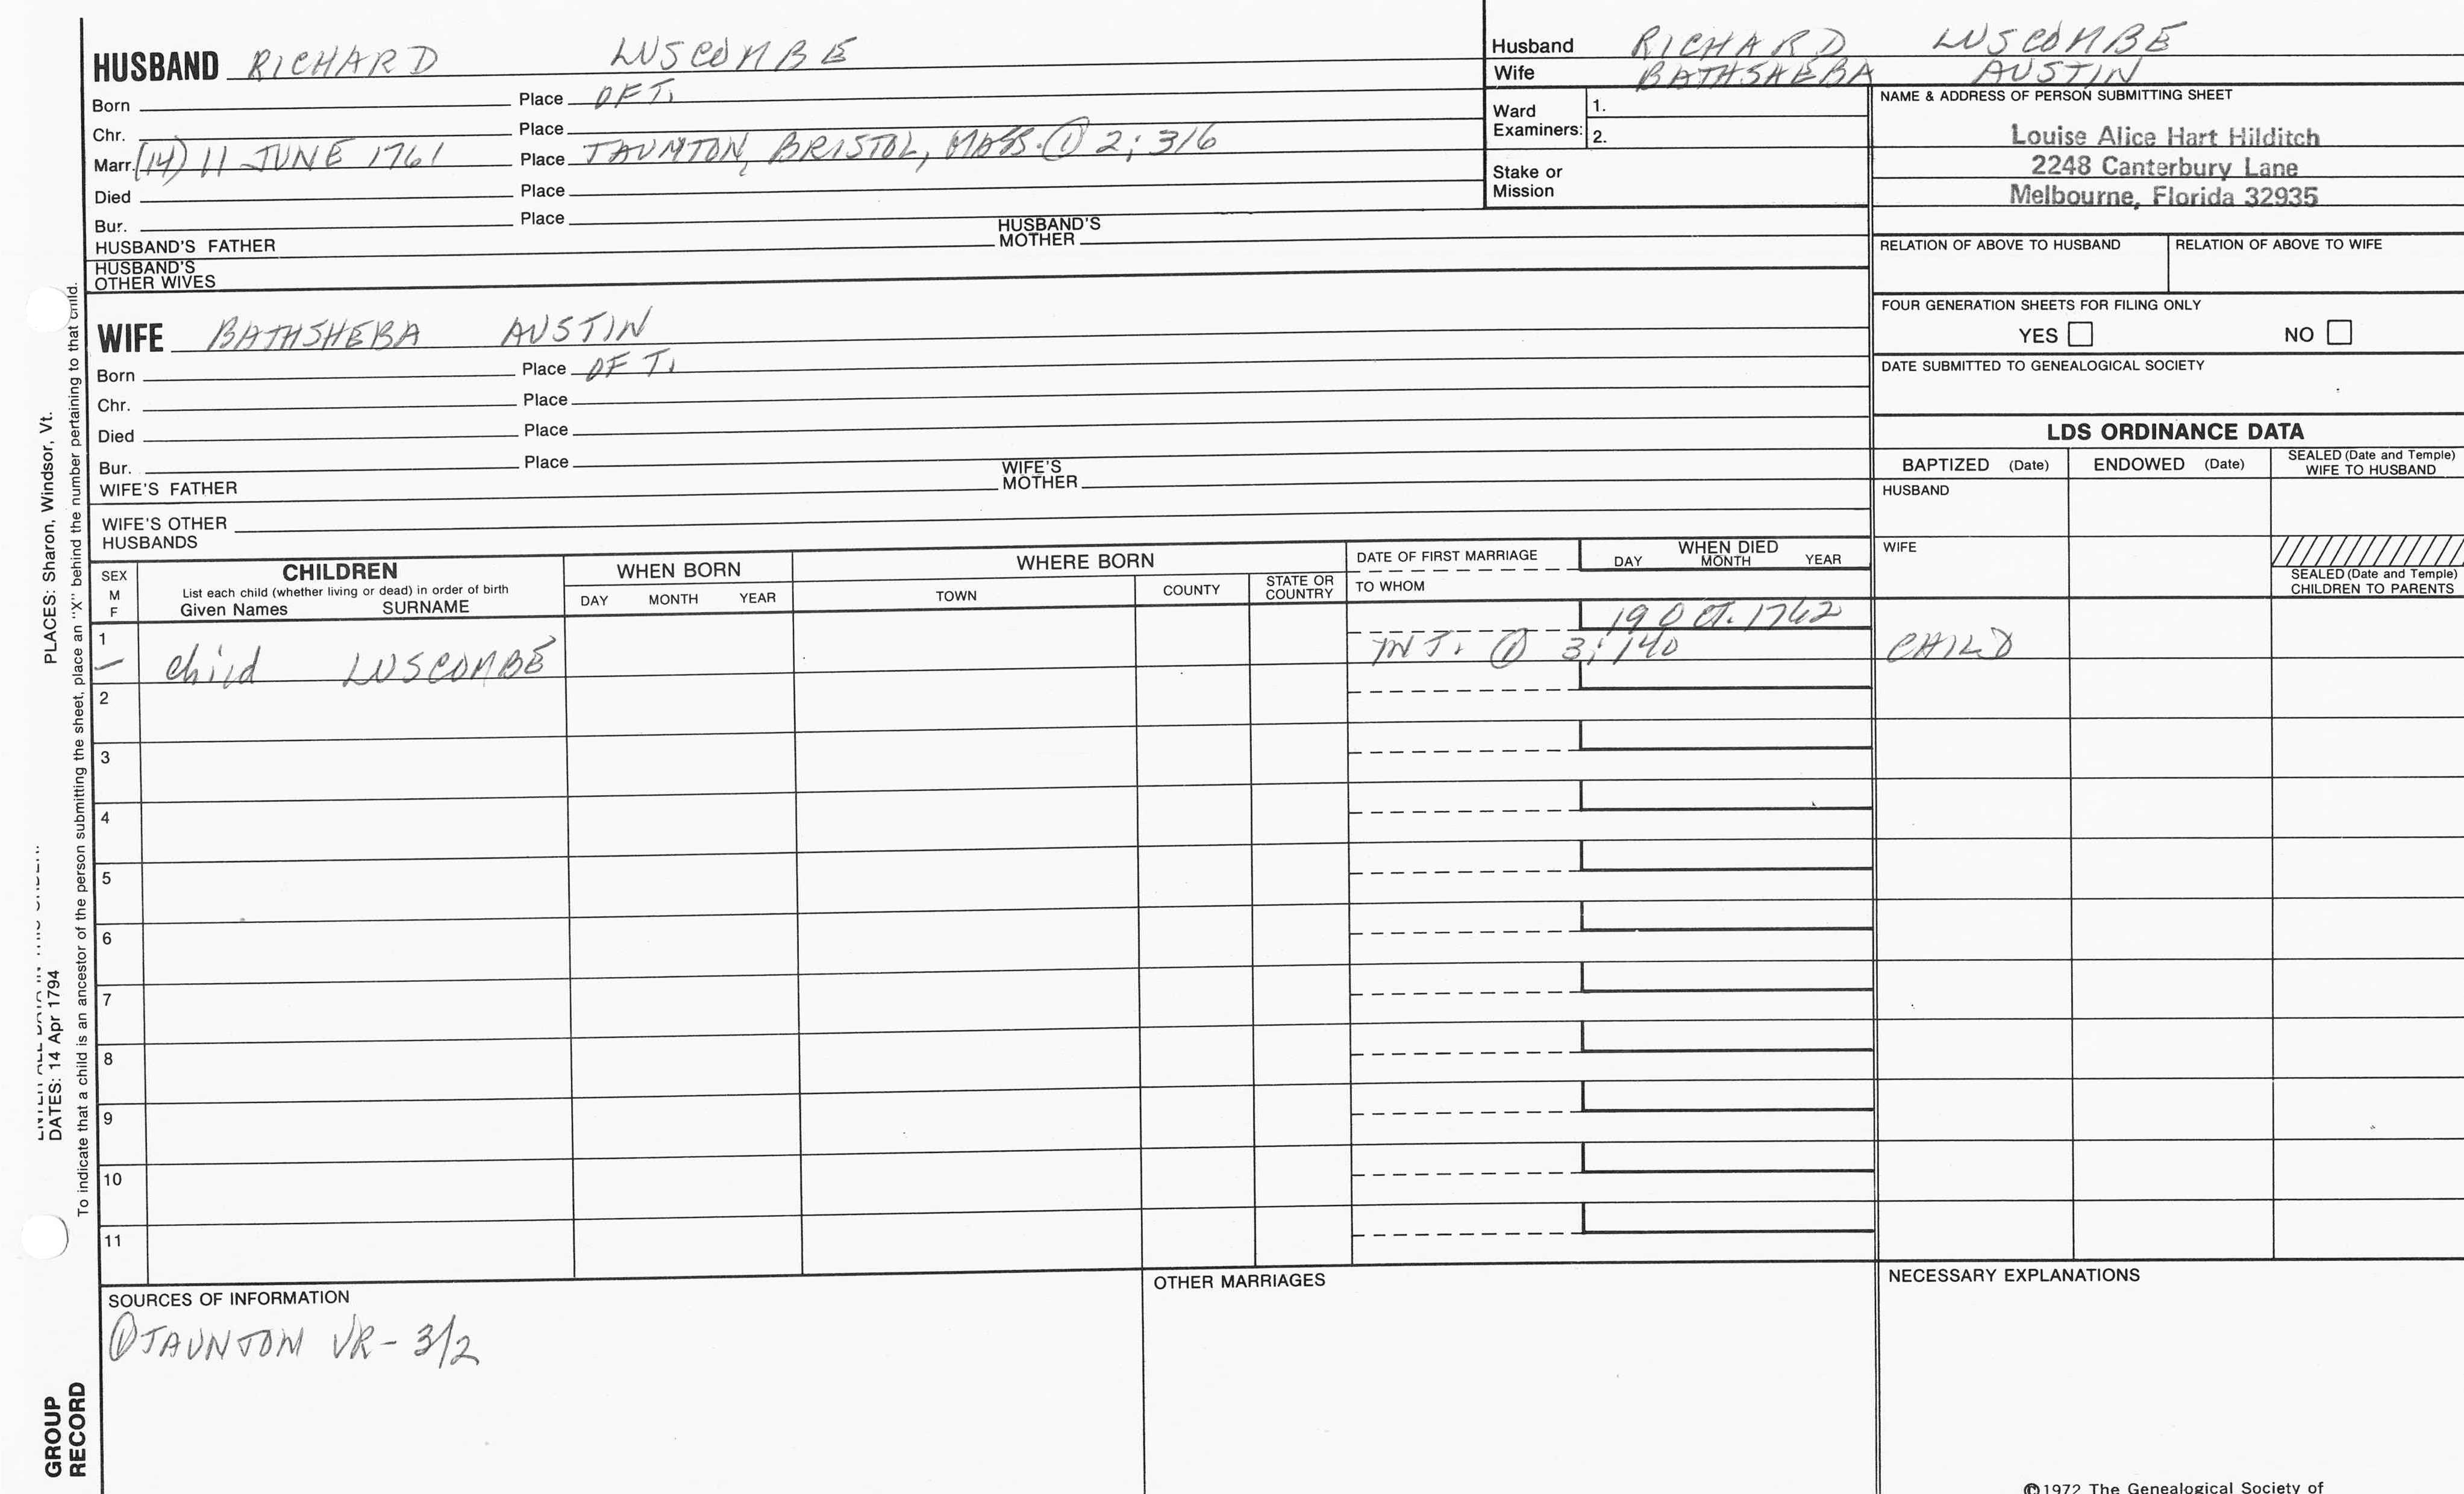 HUSBAND RICHARD LUSCOMBE
Born Place OF T.
Chr. Place
Marr. (14) 11 JUNE 1761 Place TAUNTON, BRISTOL, MASS. ① 2; 316
Died Place
Bur. Place
HUSBAND'S FATHER HUSBAND'S MOTHER
HUSBAND'S OTHER WIVES
Husband RICHARD LUSCOMBE
Wife BATHSHEBA AUSTIN
Ward Examiners: 1.
2.
Stake or Mission
NAME & ADDRESS OF PERSON SUBMITTING SHEET
Louise Alice Hart Hilditch
2248 Canterbury Lane
Melbourne, Florida 32935
RELATION OF ABOVE TO HUSBAND RELATION OF ABOVE TO WIFE
FOUR GENERATION SHEETS FOR FILING ONLY
YES NO
DATE SUBMITTED TO GENEALOGICAL SOCIETY
WIFE BATHSHEBA AUSTIN
Born Place OF T.
Chr. Place
Died Place
Bur. Place
WIFE'S FATHER WIFE'S MOTHER
WIFE'S OTHER HUSBANDS
LDS ORDINANCE DATA
BAPTIZED (Date) ENDOWED (Date) SEALED (Date and Temple) WIFE TO HUSBAND
HUSBAND
WIFE
SEALED (Date and Temple) CHILDREN TO PARENTS
SEX M F
CHILDREN
List each child (whether living or dead) in order of birth
Given Names SURNAME
WHEN BORN
DAY MONTH YEAR
WHERE BORN
TOWN COUNTY STATE OR COUNTRY
DATE OF FIRST MARRIAGE
TO WHOM
WHEN DIED
DAY MONTH YEAR
1 19 OCT. 1762
— child LUSCOMBE INT. ① 3; 140 CHILD
2
3
4
5
6
7
8
9
10
11
SOURCES OF INFORMATION
① TAUNTON VR - 3/2
OTHER MARRIAGES
NECESSARY EXPLANATIONS
©1972 The Genealogical Society of
PLACES: Sharon, Windsor, Vt.
DATES: 14 Apr 1794
To indicate that a child is an ancestor of the person submitting the sheet, place an "X" behind the number pertaining to that child.
GROUP
RECORD